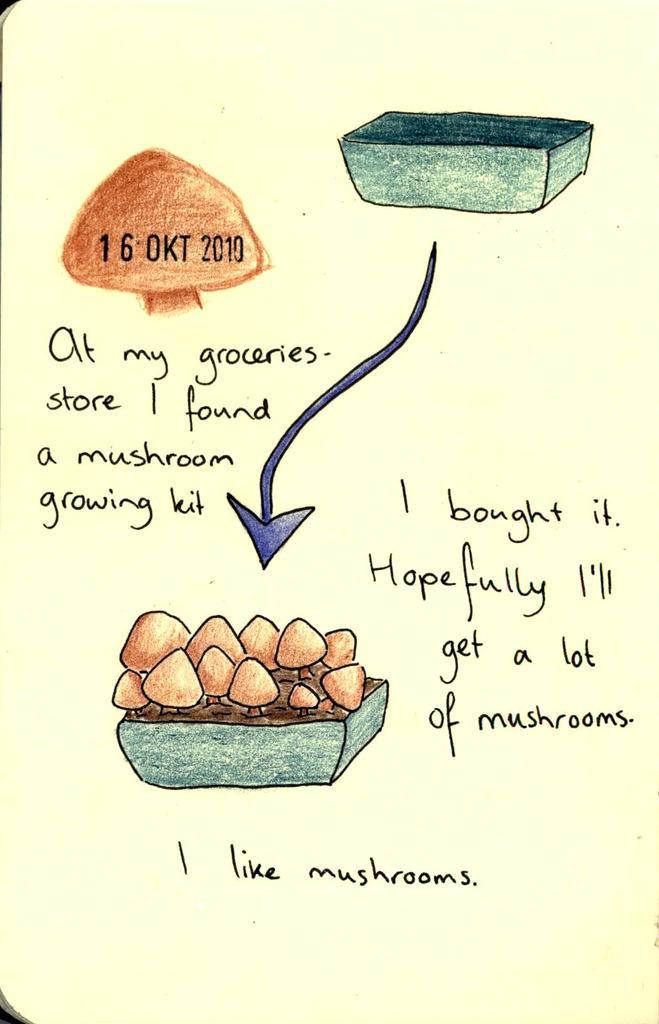 16 OKT 2010
At my groceries-
store I found
a mushroom
growing kit
I bought it.
Hopefully I'll
get a lot
of mushrooms.
I like mushrooms.